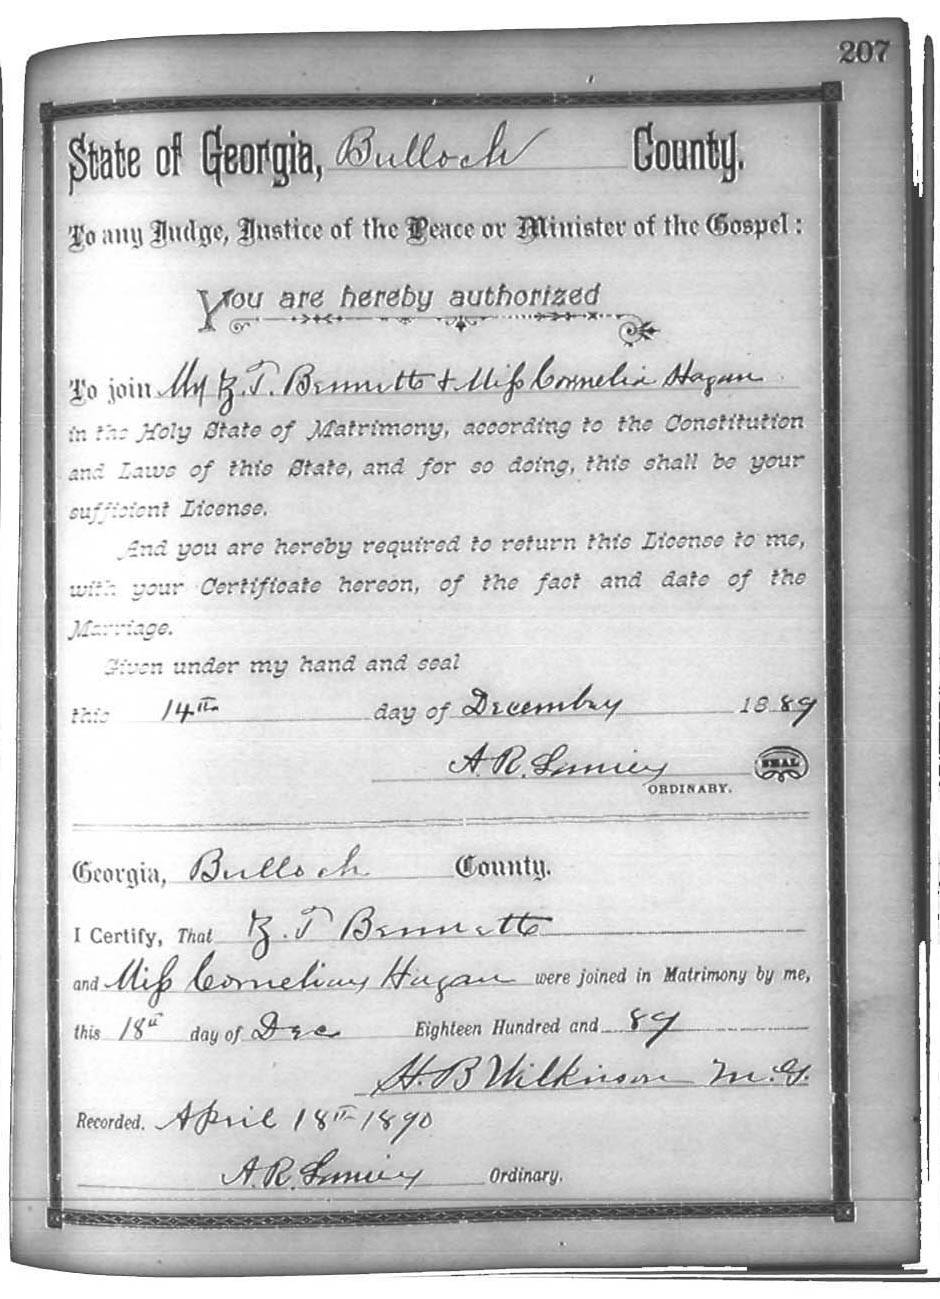 207
State of Georgia, Bulloch County.
To any Judge, Justice of the Peace or Minister of the Gospel:
You are hereby authorized
To join Mr Z. T. Bennett & Miss Cornelia Hagan
in the Holy State of Matrimony, according to the Constitution
and Laws of this State, and for so doing, this shall be your
sufficient License.
And you are hereby required to return this License to me,
with your Certificate hereon, of the fact and date of the
Marriage.
Given under my hand and seal
this 14th day of December 1889
A. R. Lanier SEAL
ORDINARY.
Georgia, Bulloch County.
I Certify, That Z. T Bennett
and Miss Hagan were joined in Matrimony by me,
this 18th day of Dec Eighteen Hundred and 89
H. B Wilkinson M. G.
Recorded. April 18th 1890
A. R. Lanier Ordinary.